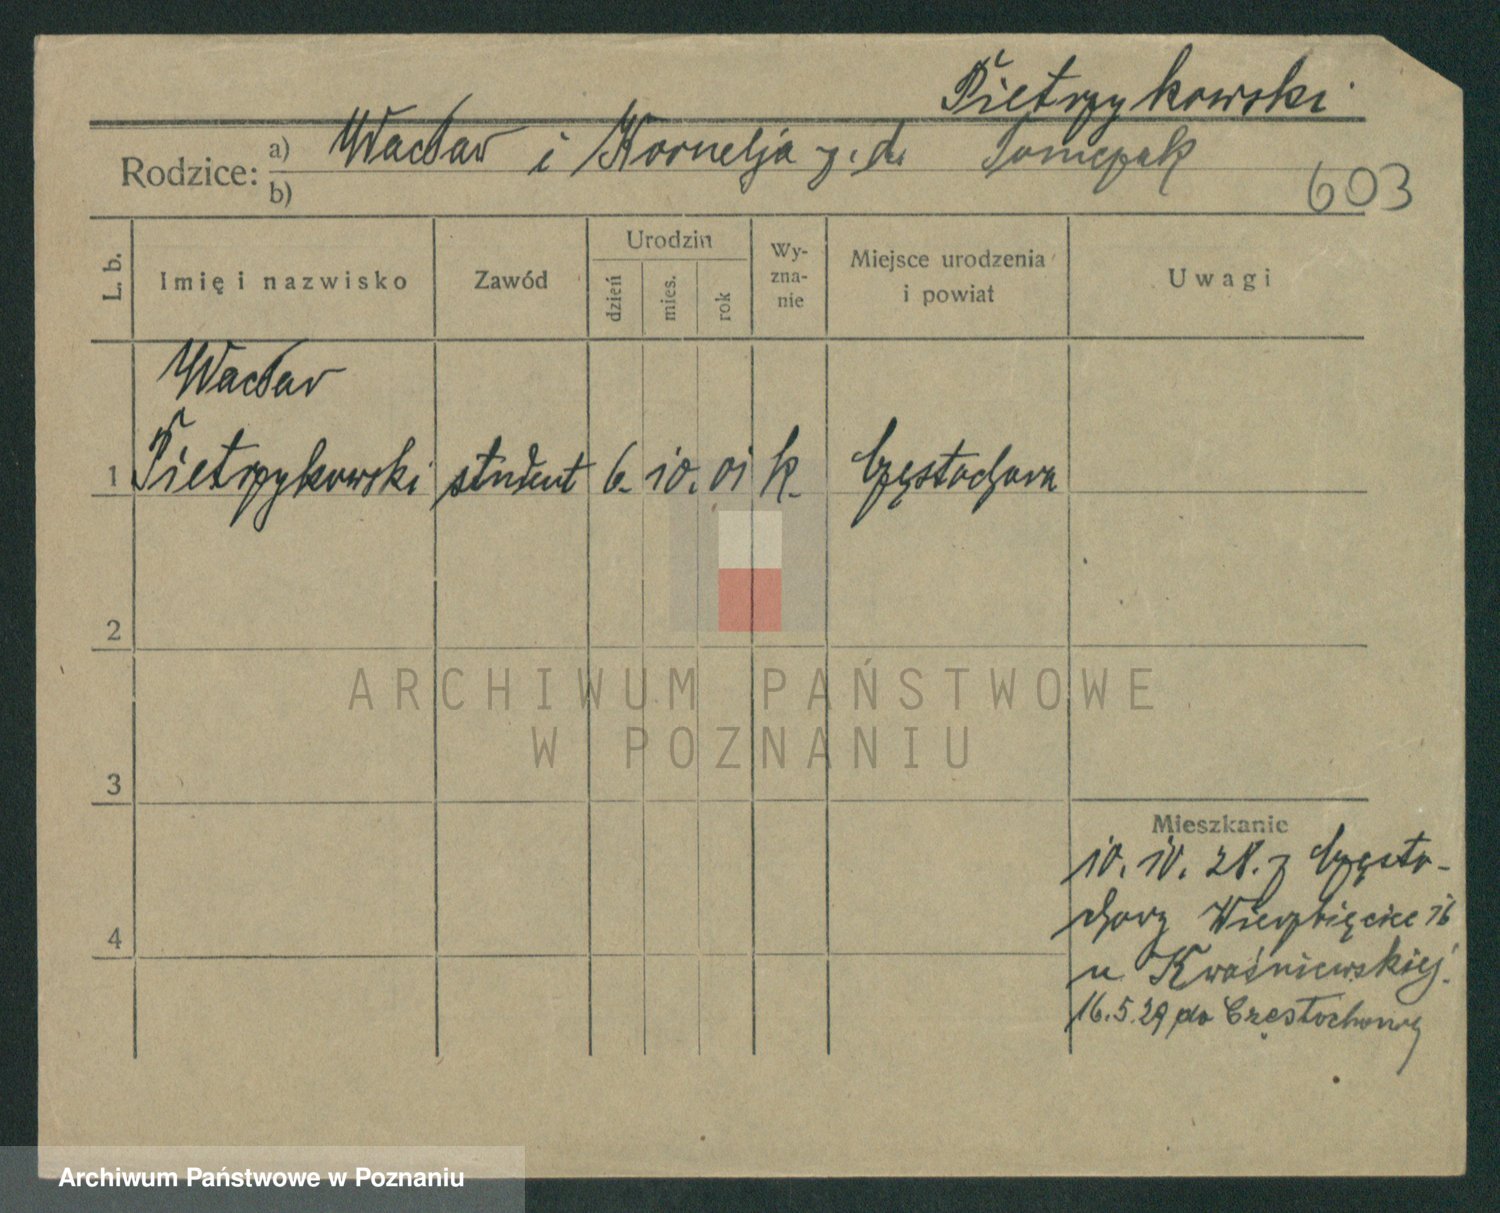 Pietrzykowski
Rodzice: a) Wacław i Kornelja z. d. Tomczak
b)
603
L. b.
Imię i nazwisko
Zawód
Urodzin
dzień
mies.
rok
Wy-
zna-
nie
Miejsce urodzenia
i powiat
Uwagi
Wacław
1 Pietrzykowski student 6. 10. 01 k. Częstochowa
2
3
4
Mieszkanie
10. IV. 28. z Często-
chowy Wierzbięcice 16
u Kwaśniewskiej.
16.5.29 do Częstochowy
ARCHIWUM PAŃSTWOWE
W POZNANIU
Archiwum Państwowe w Poznaniu